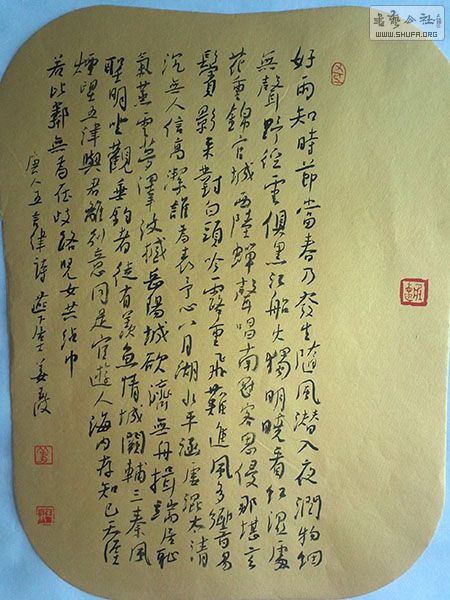 好雨知時節當春乃發生隨風潛入夜潤物細
無聲野徑雲俱黑江船火獨明曉看紅濕處
花重錦官城西陸蟬聲唱南冠客思侵那堪玄
鬢影來對白頭吟露重飛難進風多響易
沉無人信高潔誰為表予心八月湖水平涵虛混太清
氣蒸雲夢澤波撼岳陽城欲濟無舟楫端居恥
聖明坐觀垂釣者徒有羨魚情城闕輔三秦風
煙望五津與君離別意同是宦遊人海內存知己天涯
若比鄰無為在歧路兒女共沾巾
唐人五言律詩
書藝公社
WWW.SHUFA.ORG